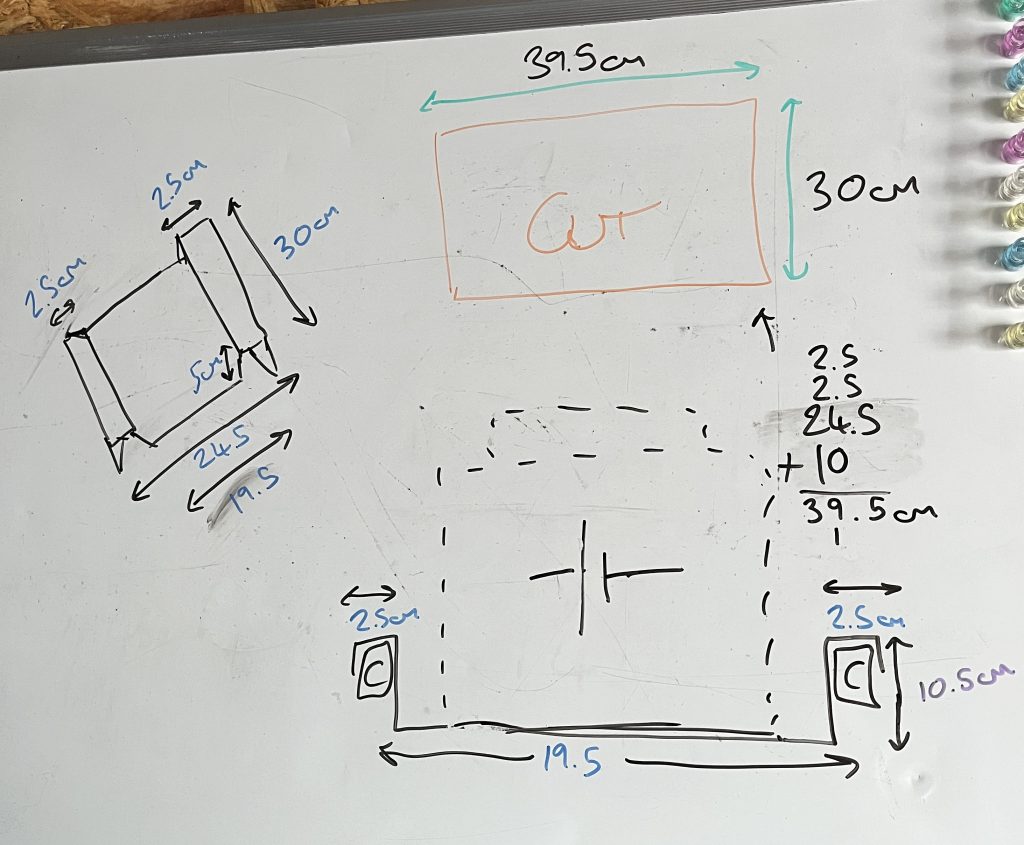 39.5cm
30cm
Cut
2.5cm
30cm
2.5cm
5cm
24.5
19.5
2.5
2.5
24.5
+10
39.5cm
1
2.5cm
2.5cm
C
C
10.5cm
19.5